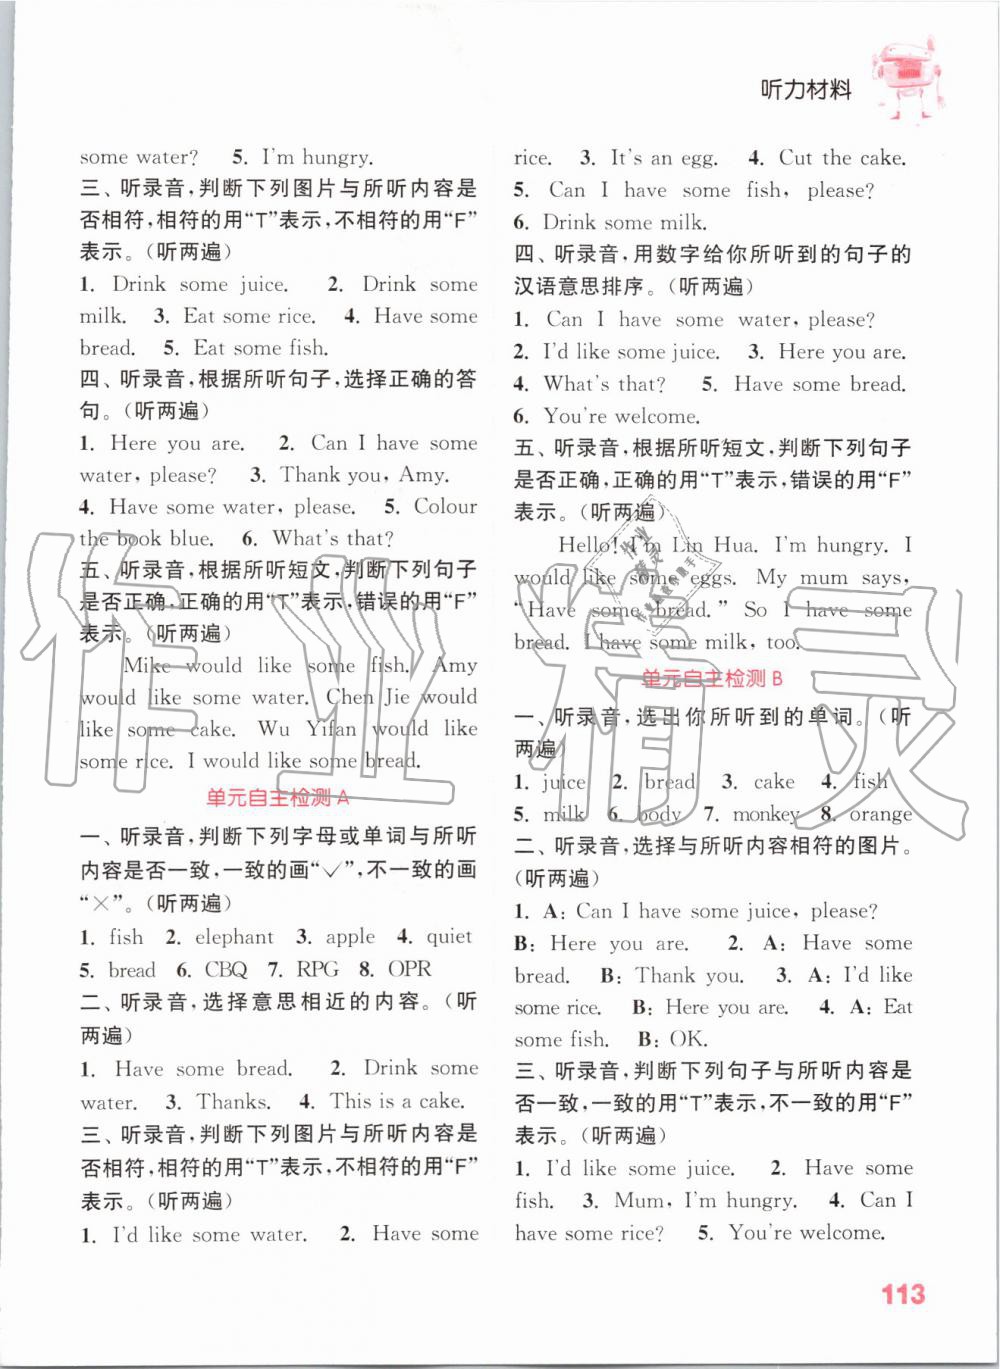 听力材料
some water?  5. I'm hungry.
三、听录音,判断下列图片与所听内容是
否相符,相符的用“T”表示,不相符的用“F”
表示。(听两遍)
1. Drink some juice.  2. Drink some
milk.  3. Eat some rice.  4. Have some
bread.  5. Eat some fish.
四、听录音,根据所听句子,选择正确的答
句。(听两遍)
1. Here you are.  2. Can I have some
water, please?  3. Thank you, Amy.
4. Have some water, please.  5. Colour
the book blue.  6. What's that?
五、听录音,根据所听短文,判断下列句子
是否正确,正确的用“T”表示,错误的用“F”
表示。(听两遍)
Mike would like some fish. Amy
would like some water. Chen Jie would
like some cake. Wu Yifan would like
some rice. I would like some bread.
单元自主检测 A
一、听录音,判断下列字母或单词与所听
内容是否一致,一致的画“√”,不一致的画
“×”。(听两遍)
1. fish  2. elephant  3. apple  4. quiet
5. bread  6. CBQ  7. RPG  8. OPR
二、听录音,选择意思相近的内容。(听
两遍)
1. Have some bread.  2. Drink some
water.  3. Thanks.  4. This is a cake.
三、听录音,判断下列图片与所听内容是
否相符,相符的用“T”表示,不相符的用“F”
表示。(听两遍)
1. I'd like some water.  2. Have some
rice.  3. It's an egg.  4. Cut the cake.
5. Can I have some fish, please?
6. Drink some milk.
四、听录音,用数字给你所听到的句子的
汉语意思排序。(听两遍)
1. Can I have some water, please?
2. I'd like some juice.  3. Here you are.
4. What's that?  5. Have some bread.
6. You're welcome.
五、听录音,根据所听短文,判断下列句子
是否正确,正确的用“T”表示,错误的用“F”
表示。(听两遍)
Hello! I'm Lin Hua. I'm hungry. I
would like some eggs. My mum says,
“Have some bread.” So I have some
bread. I have some milk, too.
单元自主检测 B
一、听录音,选出你所听到的单词。(听
两遍)
1. juice  2. bread  3. cake  4. fish
5. milk  6. body  7. monkey  8. orange
二、听录音,选择与所听内容相符的图片。
(听两遍)
1. A: Can I have some juice, please?
B: Here you are.  2. A: Have some
bread.  B: Thank you.  3. A: I'd like
some rice.  B: Here you are.  4. A: Eat
some fish.  B: OK.
三、听录音,判断下列句子与所听内容是
否一致,一致的用“T”表示,不一致的用“F”
表示。(听两遍)
1. I'd like some juice.  2. Have some
fish.  3. Mum, I'm hungry.  4. Can I
have some rice?  5. You're welcome.
113
作业精灵